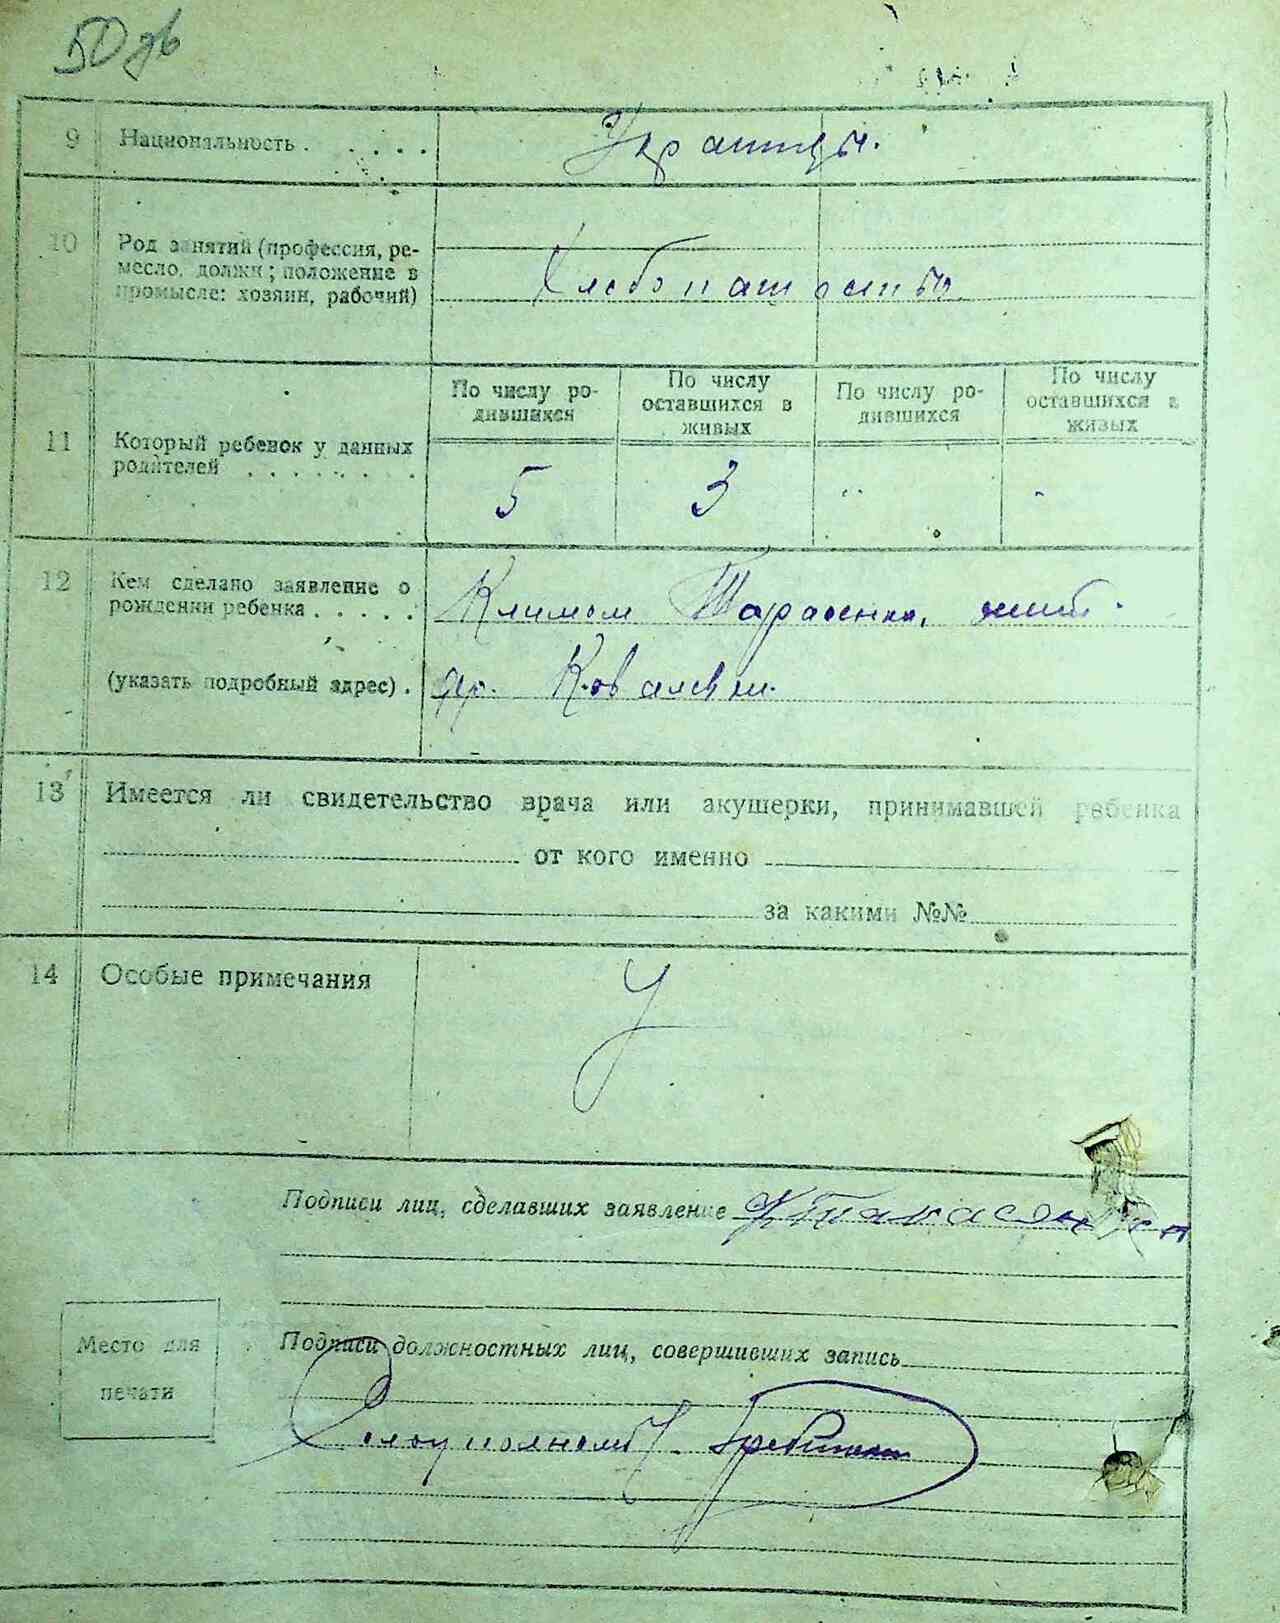 50 зв
9 Национальность . . . . . Украинцы.
10 Род занятий (профессия, ре-
месло, должн; положение в
промысле: хозяин, рабочий)
Хлебопашества
По числу ро-
дившихся
По числу
оставшихся в
живых
По числу ро-
дившихся
По числу
оставшихся в
живых
11 Который ребенок у данных
родителей . . . . . . .
5 3 " "
12 Кем сделано заявление о
рождении ребенка . . . . .
Климом Тарасенко, жит.
(указать подробный адрес) . гр. Ковалевки.
13 Имеется ли свидетельство врача или акушерки, принимавшей ребенка
от кого именно
за какими №№
14 Особые примечания
Подписи лиц, сделавших заявление К Тарасенко
Место для
печати
Подписи должностных лиц, совершивших запись